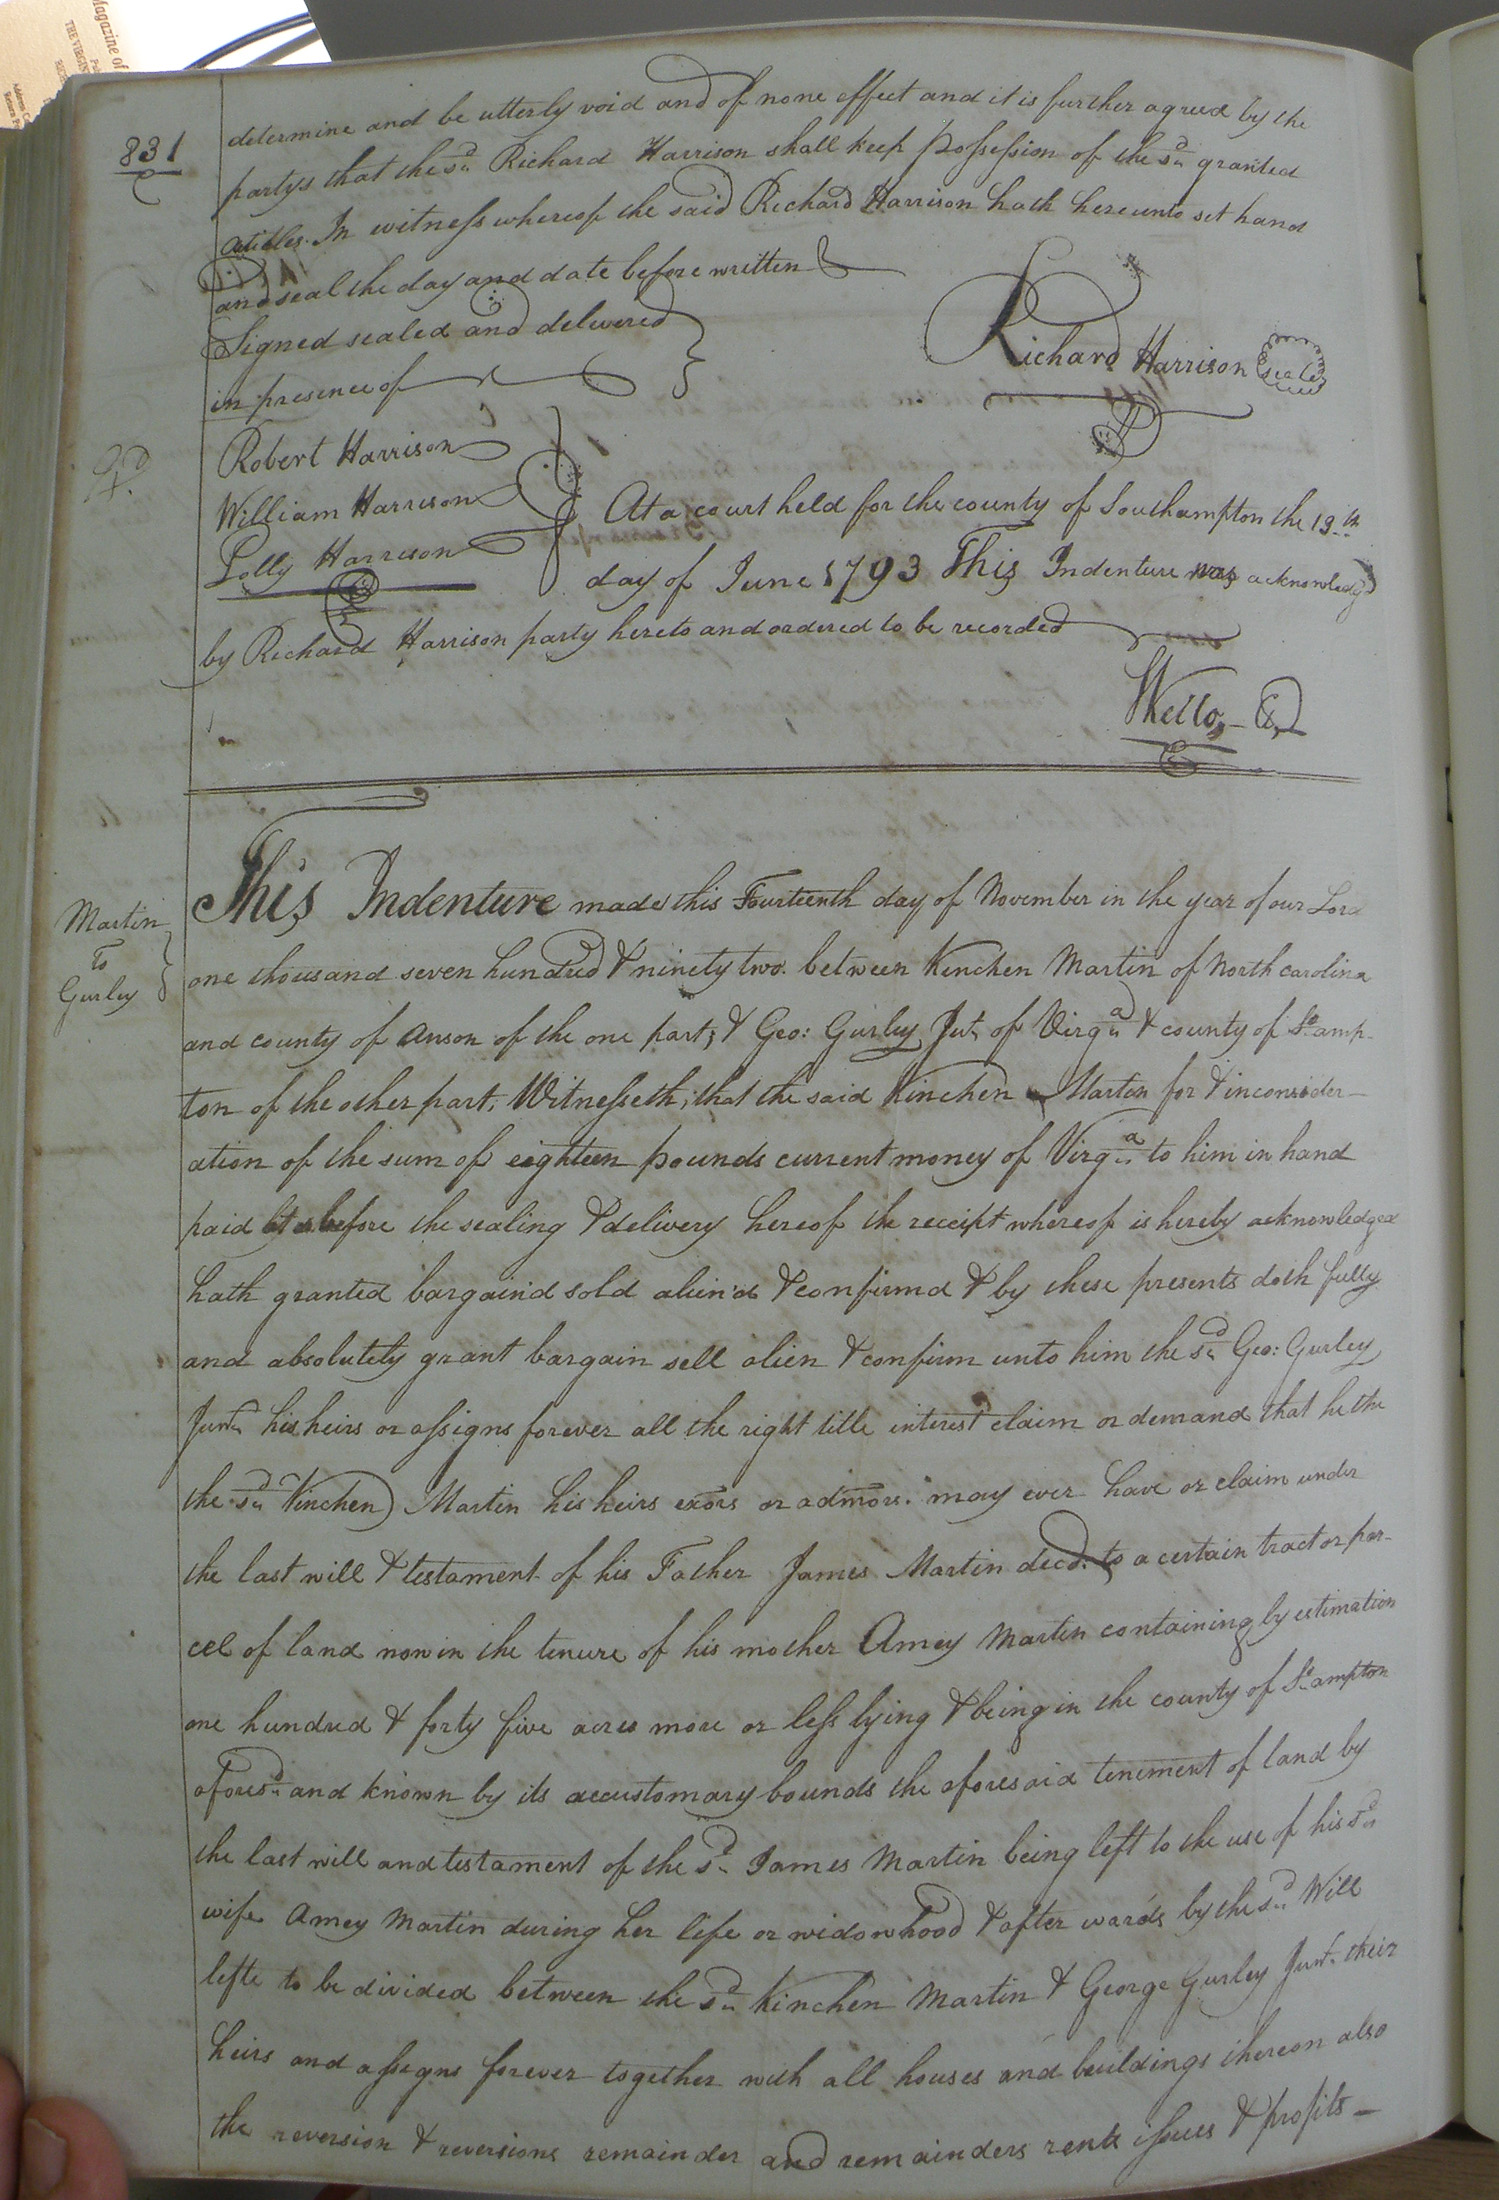 Magazine of
THE VIRGIN
831
determine and be utterly void and of none effect and it is further agreed by the
partys that the sd. Richard Harrison shall keep possession of the sd. granted
articles. In witness whereof the said Richard Harrison hath hereunto set hand
and seal the day and date before written
Signed sealed and delivered
in presence of
Richard Harrison seal
Robert Harrison
William Harrison
Polly Harrison
At a court held for the county of Southampton the 13th
day of June 1793 This Indenture was acknowledgd
by Richard Harrison party hereto and ordered to be recorded
Kello,
Martin
to
Gurley
This Indenture made this Fourteenth day of November in the year of our Lord
one thousand seven hundred & ninety two. between Kinchen Martin of North carolina
and county of Anson of the one part; & Geo: Gurley Junr. of Virga. & county of So.amp-
ton of the other part; Witnesseth; that the said Kinchen Martin for & in consider-
ation of the sum of eighteen pounds current money of Virga. to him in hand
paid at or before the sealing & delivery hereof the receipt whereof is hereby acknowledged
hath granted bargain'd sold alien'd & confirmd & by these presents doth fully
and absolutely grant bargain sell alien & confirm unto him the sd. Geo: Gurley
Junr. his heirs or assigns forever all the right title interest claim or demand that he the
the sd. Kinchen Martin his heirs exors or admors. may ever have or claim under
the last will & testament of his Father James Martin decd. to a certain tract or par-
cel of land now in the tenure of his mother Amey Martin containing by estimation
one hundred & forty five acres more or less lying & being in the county of So.ampton
aforesd. and known by its accustomary bounds the aforesaid teniment of land by
the last will and testament of the sd. James Martin being left to the use of his sd.
wife Amey Martin during her life or widowhood & after wards by the sd. Will
lefte to be divided between the sd. Kinchen Martin & George Gurley Junr. their
heirs and assigns forever together with all houses and buildings thereon also
the reversion & reversions remainder and remainders rents issues & profits-